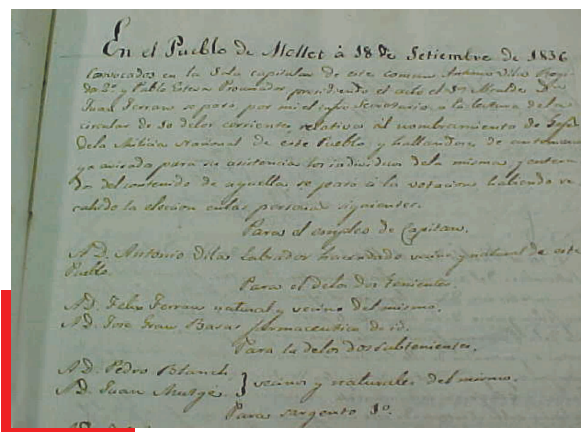 En el Pueblo de Mollet à 18 de Setiembre de 1836
Convocados en la Sala capitular de este comun Antonio Vila Regi-
dor 2º y Pablo Esteva Procurador presidiendo el acto el Sor Alcalde Dn
Juan Ferran se pasó, por mi el infro Secretario, a la lectura del
circular de 10 delos corrientes, relativa al nombramiento de Gefes
dela Milicia Nacional de este Pueblo, y hallandose
ya avisada para su asistencia los individuos dela misma y entera-
dos del contenido de aquella, se pasó à la votacion, habiendo re-
cahido la eleccion en las personas siguientes.
Para el empleo de Capitan.
A D. Antonio Vila Labrador hacendado vecino y natural de este
Pueblo.
Para el delos dos tenientes.
A D. Felix Ferran natural y vecino del mismo.
A D. Jose Grau Basas farmaceutico de id.
Para la delos dos Subtenientes.
A D. Pedro Blanch
A D. Juan Mutge } vecinos y naturales del mismo.
Para sargento 1º.